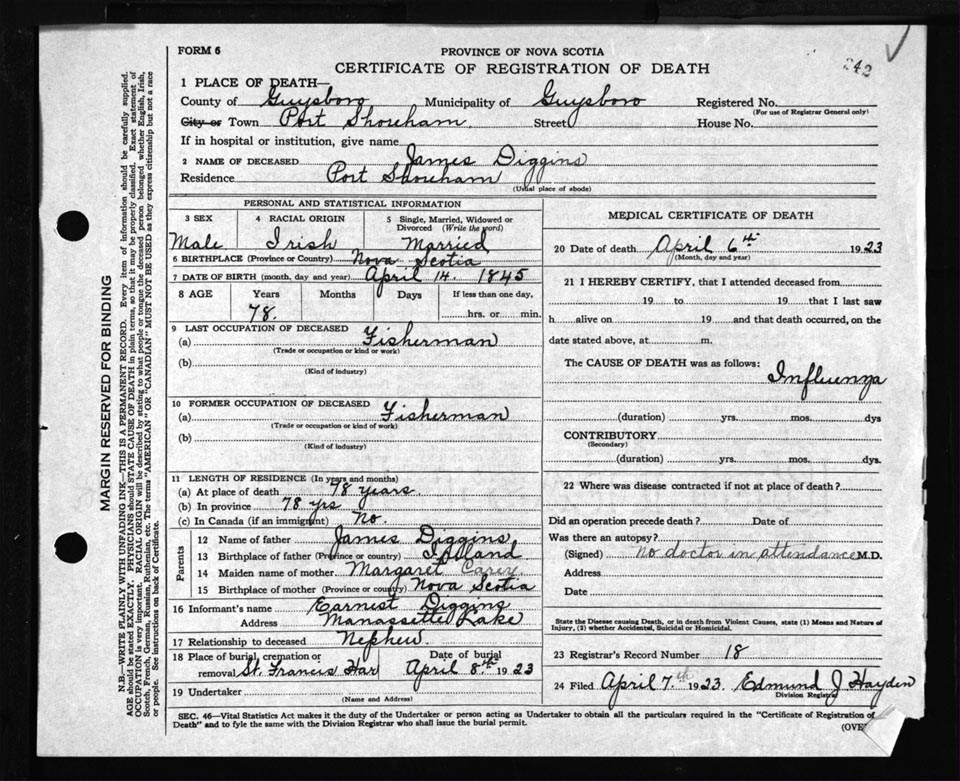 FORM 6
PROVINCE OF NOVA SCOTIA
242
CERTIFICATE OF REGISTRATION OF DEATH
1 PLACE OF DEATH—
County of Guysboro Municipality of Guysboro Registered No.
(For use of Registrar General only)
City or Town Port Shoreham Street House No.
If in hospital or institution, give name
2 NAME OF DECEASED James Diggins
Residence Port Shoreham
(Usual place of abode)
PERSONAL AND STATISTICAL INFORMATION
3 SEX 4 RACIAL ORIGIN 5 Single, Married, Widowed or Divorced (Write the word)
Male Irish Married
6 BIRTHPLACE (Province or Country) Nova Scotia
7 DATE OF BIRTH (month, day and year) April 14. 1845
8 AGE Years Months Days If less than one day,
78. hrs. or min.
9 LAST OCCUPATION OF DECEASED
(a) Fisherman
(Trade or occupation or kind or work)
(b)
(Kind of industry)
10 FORMER OCCUPATION OF DECEASED
(a) Fisherman
(Trade or occupation or kind of work)
(b)
(Kind of industry)
11 LENGTH OF RESIDENCE (In years and months)
(a) At place of death 78 years.
(b) In province 78 yrs
(c) In Canada (if an immigrant) No.
Parents
12 Name of father James Diggins
13 Birthplace of father (Province or country) Ireland
14 Maiden name of mother Margaret Carey
15 Birthplace of mother (Province or country) Nova Scotia
16 Informant's name Earnest Diggins
Address Manassette Lake
17 Relationship to deceased Nephew
18 Place of burial, cremation or removal St. Francis Har Date of burial April 8th 1923
19 Undertaker
(Name and Address)
MEDICAL CERTIFICATE OF DEATH
20 Date of death April 6th 1923
(Month, day and year)
21 I HEREBY CERTIFY, that I attended deceased from
19 to 19 that I last saw
h alive on 19 and that death occurred, on the
date stated above, at m.
The CAUSE OF DEATH was as follows:
Influenza
(duration) yrs. mos. dys
CONTRIBUTORY
(Secondary)
(duration) yrs. mos. dys.
22 Where was disease contracted if not at place of death?
Did an operation precede death? Date of
Was there an autopsy?
(Signed) No doctor in attendance M.D.
Address
Date
State the Disease causing Death, or in death from Violent Causes, state (1) Means and Nature of
Injury, (2) whether Accidental, Suicidal or Homicidal.
23 Registrar's Record Number 18
24 Filed April 7th 1923. Edmund J Hayden
Division Registrar
SEC. 46—Vital Statistics Act makes it the duty of the Undertaker or person acting as Undertaker to obtain all the particulars required in the "Certificate of Registration of
Death" and to fyle the same with the Division Registrar who shall issue the burial permit.
(OVE
MARGIN RESERVED FOR BINDING
N.B.—WRITE PLAINLY WITH UNFADING INK—THIS IS A PERMANENT RECORD. Every item of information should be carefully supplied.
AGE should be stated EXACTLY. PHYSICIANS should STATE CAUSE OF DEATH in plain terms, so that it may be properly classified. Exact statement of
OCCUPATION is very important. RACIAL ORIGIN will be described by stating to what people or tongue the deceased person belonged whether English, Irish,
Scotch, French, German, Russian, Ruthenian, etc. The terms "AMERICAN" OR "CANADIAN" MUST NOT BE USED as they express citizenship but not a race
or people. See instructions on back of Certificate.